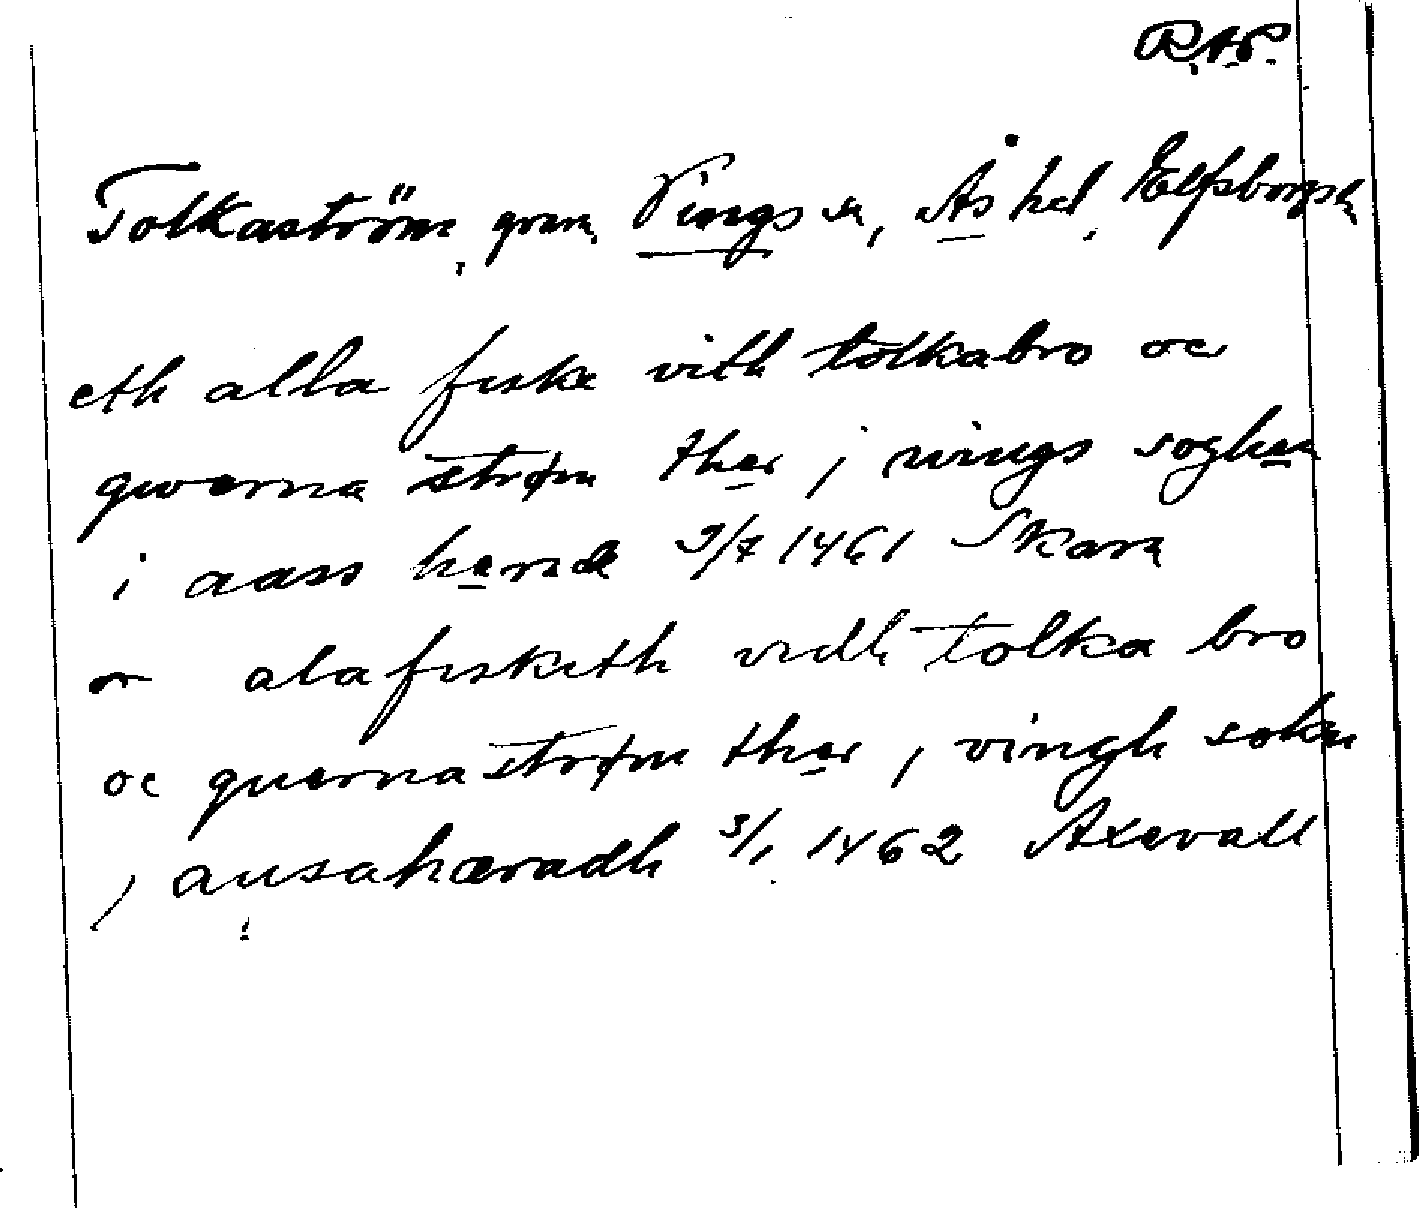 R.A.P.
Tolkaström, qvarn, Vings sn, Ås hd, Elfsborgs l.
eth alla fiske vith tolkabro oc
qwerna strøm ther j wings soghen
i aass herade 9/7 1461 Skara
alafisketh vidh tolka bro
oc querna strøm ther j vingh sokn
j ausahæradh 3/1 1462 Axevall
!